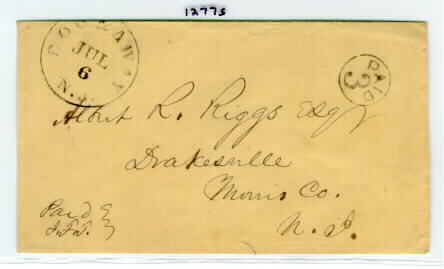 12775
ROCKAWAY
JUL
6
N.J.
PAID
3
Albert R. Riggs Esqr
Drakesville
Morris Co.
N. J.
Paid
J.F.S.